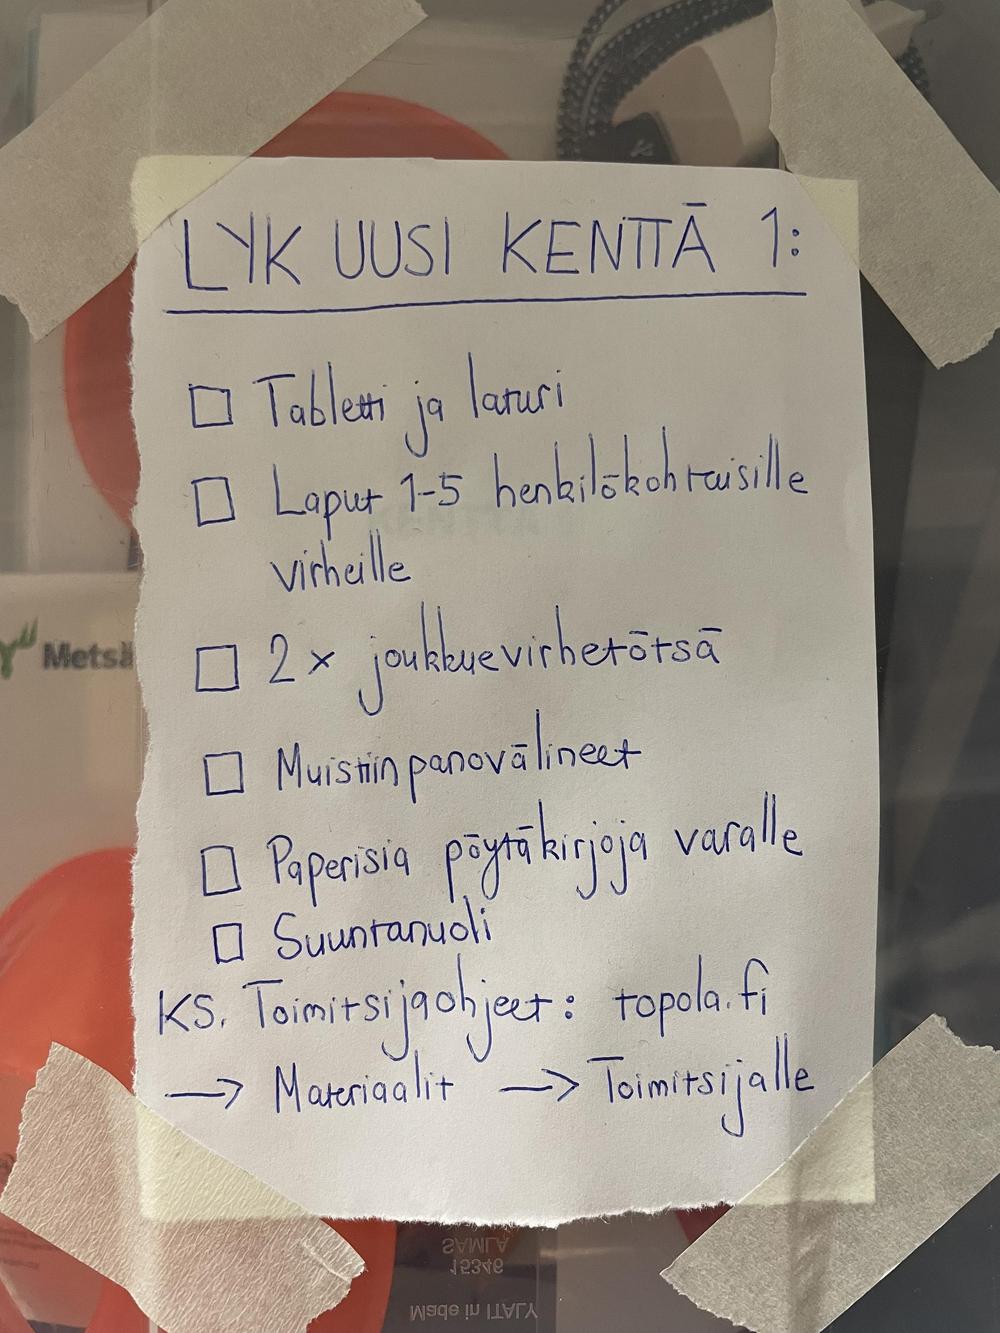 LYK UUSI KENTTÄ 1:
Tabletti ja laturi
Laput 1-5 henkilökohtaisille
virheille
2 x joukkuevirhetötsä
Muistiinpanovälineet
Paperisia pöytäkirjoja varalle
Suuntanuoli
KS. Toimitsijaohjeet: topola.fi
→ Materiaalit → Toimitsijalle
Metsä
SAMLA
15346
Made in ITALY